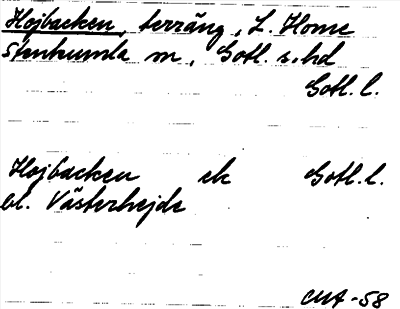 Hojbacken, terräng, L. Home
Stenkumla sn, Gotl. s. hd
Gotl. l.
Hojbacken ek Gotl. l.
bl. Västerhejde
CMA -58